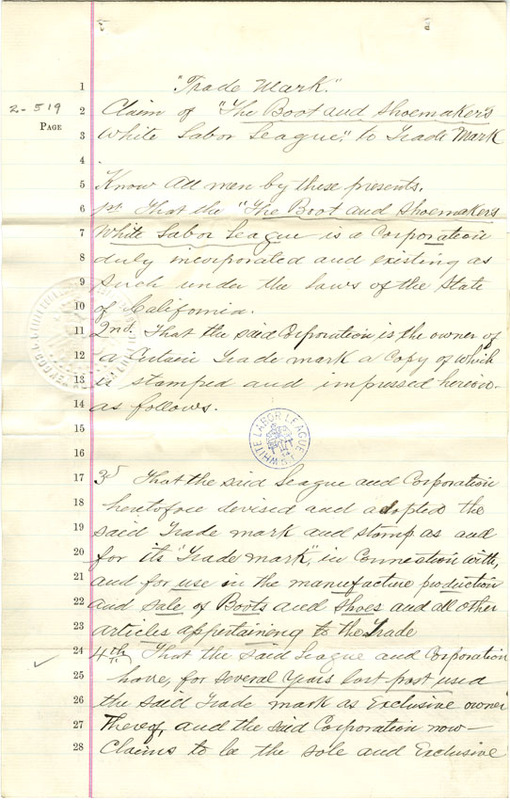 1 "Trade Mark."
2-519
PAGE
2 Claim of "The Boot and Shoemaker's
3 White Labor League," to Trade Mark
4
5 Know All men by these presents.
6 1st That the "The Boot and Shoemaker's
7 White Labor League is a Corporation
8 duly incorporated and existing as
9 Such under the Laws of the State
10 of California.
11 2nd. That the said Corporation is the owner of
12 a Certain Trade mark a Copy of which
13 is stamped and impressed hereon
14 as follows.
15
WHITE LABOR LEAGUE
16
17 3d That the said League and Corporation
18 heretofore devised and adopted the
19 said Trade mark and stamp as and
20 for its "Trade mark", in Connection with,
21 and for use in the manufacture production
22 and Sale of Boots and Shoes and all other
23 articles appertaining to the Trade
24 4th That the said League and Corporation
25 have, for several Years last past used
26 the said Trade mark as Exclusive owner
27 Thereof, and the said Corporation now
28 Claims to be the sole and Exclusive